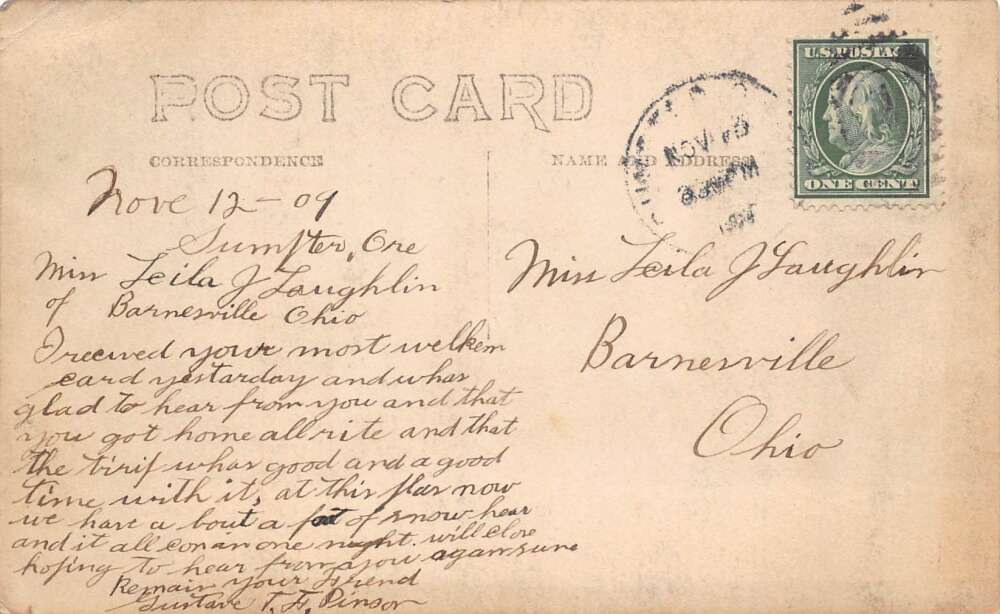 POST CARD
CORRESPONDENCE
NAME AND ADDRESS
U.S. POSTAGE
ONE CENT
NOV 13
PM
Nove 12-09
Sumpter, Ore
Miss Leila J Laughlin
of Barnesville Ohio
I recived your most welkem
card yestarday and whas
glad to hear from you and that
you got home all rite and that
the trip whas good and a good
time with it, at this plas now
we have a bout a foot of snow hear
and it all con in one night. will close
hoping to hear from you agan sune
Remain your friend
Gustave T. F. Pinson
Miss Leila J Laughlin
Barnesville
Ohio